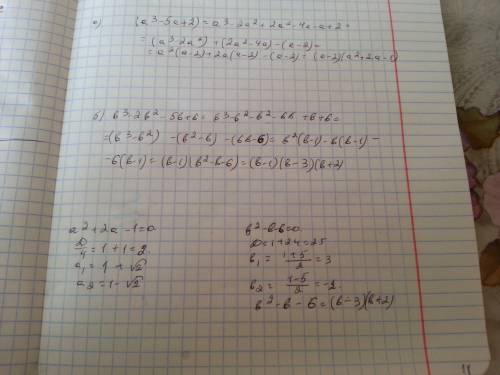 а) (a³-5a+2) = a³-2a²+2a²-4a-a+2=
=(a³-2a²)+(2a²-4a)-(a-2)=
=a²(a-2)+2a(a-2)-(a-2)=(a-2)(a²+2a-1)
б) b³-2b²-5b+6= b³-b²-b²-6b+b+6=
=(b³-b²)-(b²-b)-(6b-6)=b²(b-1)-b(b-1)-
-6(b-1)=(b-1)(b²-b-6)=(b-1)(b-3)(b+2)
a²+2a-1=0
D/4=1+1=2.
a₁=1+√2
a₂=1-√2
b²-b-6=0
D=1+24=25
b₁= (1+5)/2 = 3
b₂= (1-5)/2 = -2
b²-b-6=(b-3)(b+2)